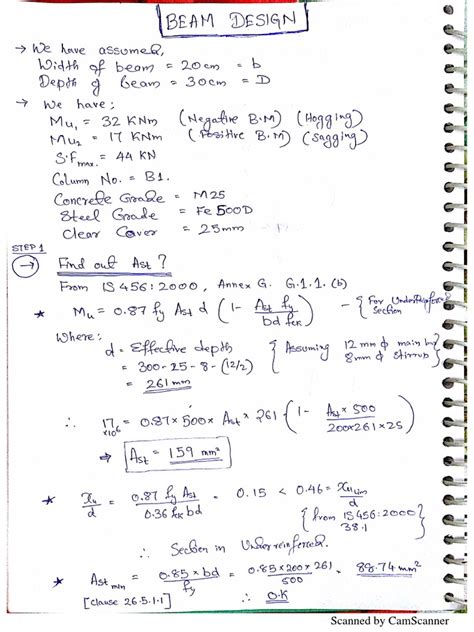 BEAM DESIGN
→ We have assumed,
Width of beam = 20cm = b
Depth of beam = 30cm = D
→ We have:
Mu₁ = 32 KNm (Negative B.M) (Hogging)
Mu₂ = 17 KNm (Positive B.M) (Sagging)
S.F max. = 44 KN
Column No. = B1.
Concrete Grade = M25
Steel Grade = Fe 500D
Clear Cover = 25mm
STEP 1
→ Find out Ast ?
From IS 456:2000, Annex G. G.1.1. (b)
★ Mu = 0.87 fy Ast d (1 - Ast fy / bd fck) - {For Underreinforced Section
Where:
d = Effective depth { Assuming 12 mm ϕ main bar
= 300-25-8-(12/2) 8mm ϕ stirrup }
= 261 mm
∴ 17 ×10⁶ = 0.87 × 500 × Ast × 261 {1 - Ast × 500 / 200×261×25}
⇒ Ast = 159 mm²
★ xu/d = 0.87 fy Ast / 0.36 fck bd = 0.15 < 0.46 = xulim/d
{from IS 456:2000 38.1}
∴ Section in Underreinforced.
★ Ast min = 0.85 × bd / fy = 0.85×200×261 / 500 = 88.74 mm²
[clause 26.5.1.1] ∴ O.K
Scanned by CamScanner